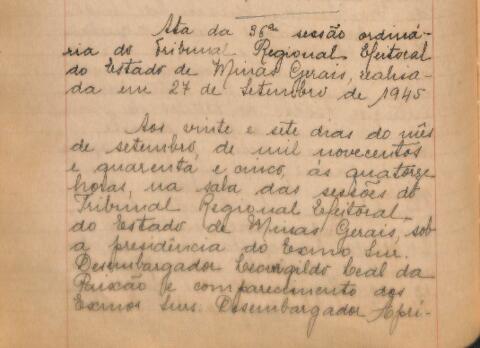 Ata da 36ª sessão ordiná-
ria do Tribunal Regional Eleitoral
do Estado de Minas Gerais, realisa-
da em 27 de Setembro de 1945
Aos vinte e sete dias do mês
de setembro, de mil novecentos
e quarenta e cinco, ás quatorze
horas, na sala das sessões do
Tribunal Regional Eleitoral
do Estado de Minas Gerais, sob
a presidência do Exmo Snr.
Desembargador Leovigildo Leal da
Paixão e comparecimento dos
Exmos Snrs. Desembargador Apri-